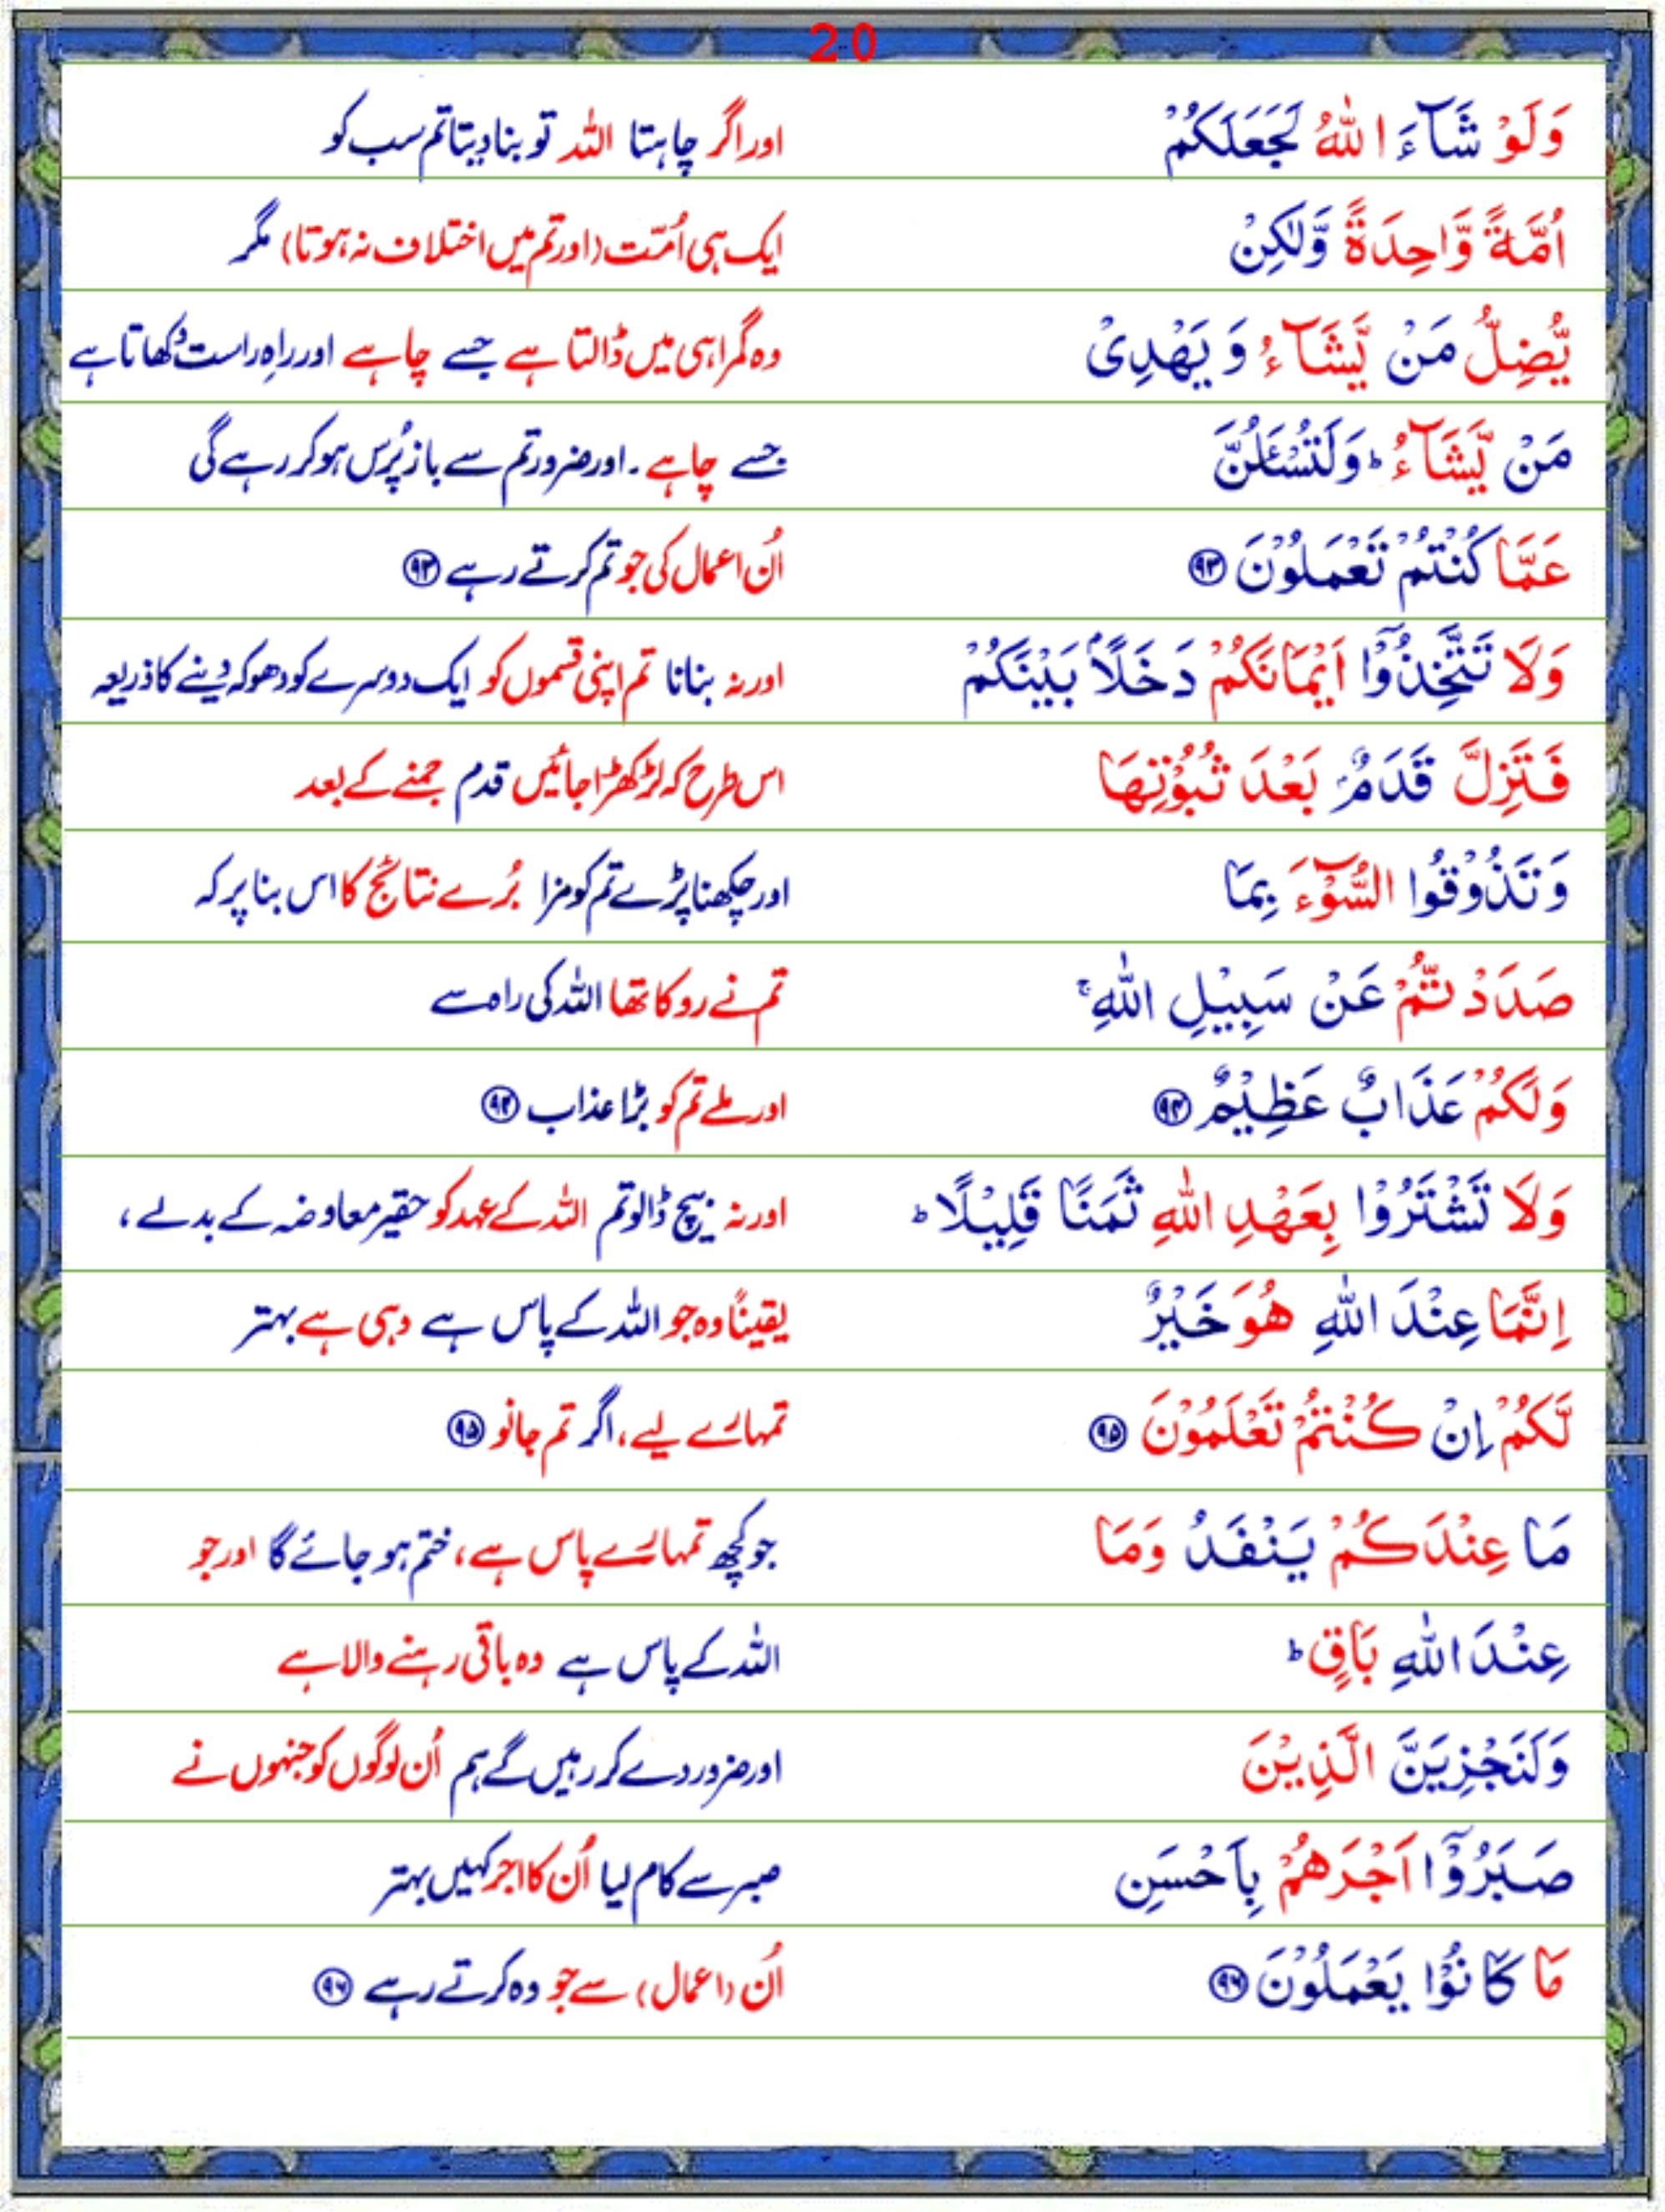 20
وَلَوْ شَآءَ اللّٰهُ لَجَعَلَكُمْ اور اگر چاہتا اللہ تو بنا دیتا تم سب کو
اُمَّةً وَّاحِدَةً وَّلٰكِنْ ایک ہی اُمّت (اور تم میں اختلاف نہ ہوتا) مگر
يُّضِلُّ مَنْ يَّشَآءُ وَ يَهْدِىْ وہ گمراہی میں ڈالتا ہے جسے چاہے اور راہِ راست دُکھاتا ہے
مَنْ يَّشَآءُ ؕ وَلَتُسْـَٔلُنَّ جسے چاہے ۔ اور ضرور تم سے باز پُرس ہو کر رہے گی
عَمَّا كُنْتُمْ تَعْمَلُوْنَ ﴿۹۳﴾ اُن اعمال کی جو تم کرتے رہے ﴿۹۳﴾
وَلَا تَتَّخِذُوْۤا اَيْمَانَكُمْ دَخَلًاۢ بَيْنَكُمْ اور نہ بنانا تم اپنی قسموں کو ایک دوسرے کو دھوکہ دینے کا ذریعہ
فَتَزِلَّ قَدَمٌۢ بَعْدَ ثُبُوْتِهَا اس طرح کہ لڑکھڑا جائیں قدم جمنے کے بعد
وَتَذُوْقُوا السُّوْٓءَ بِمَا اور چکھنا پڑے تم کو مزا بُرے نتائج کا اس بنا پر کہ
صَدَدْتُّمْ عَنْ سَبِيْلِ اللّٰهِ ۚ تم نے روکا تھا اللہ کی راہ سے
وَلَكُمْ عَذَابٌ عَظِيْمٌ ﴿۹۴﴾ اور ملے تم کو بڑا عذاب ﴿۹۴﴾
وَلَا تَشْتَرُوْا بِعَهْدِ اللّٰهِ ثَمَنًا قَلِيْلًا ؕ اور نہ بیچ ڈالو تم اللہ کے عہد کو حقیر معاوضہ کے بدلے ،
اِنَّمَا عِنْدَ اللّٰهِ هُوَ خَيْرٌ یقیناً وہ جو اللہ کے پاس ہے وہی ہے بہتر
لَّكُمْ اِنْ كُنْتُمْ تَعْلَمُوْنَ ﴿۹۵﴾ تمہارے لیے، اگر تم جانو ﴿۹۵﴾
مَا عِنْدَكُمْ يَنْفَدُ وَمَا جو کچھ تمہارے پاس ہے، ختم ہو جائے گا اور جو
عِنْدَ اللّٰهِ بَاقٍ ؕ اللہ کے پاس ہے وہ باقی رہنے والا ہے
وَلَنَجْزِيَنَّ الَّذِيْنَ اور ضرور دے کر رہیں گے ہم اُن لوگوں کو جنہوں نے
صَبَرُوْۤا اَجْرَهُمْ بِاَحْسَنِ صبر سے کام لیا اُن کا اجر کہیں بہتر
مَا كَانُوْا يَعْمَلُوْنَ ﴿۹۶﴾ اُن (اعمال) سے جو وہ کرتے رہے ﴿۹۶﴾